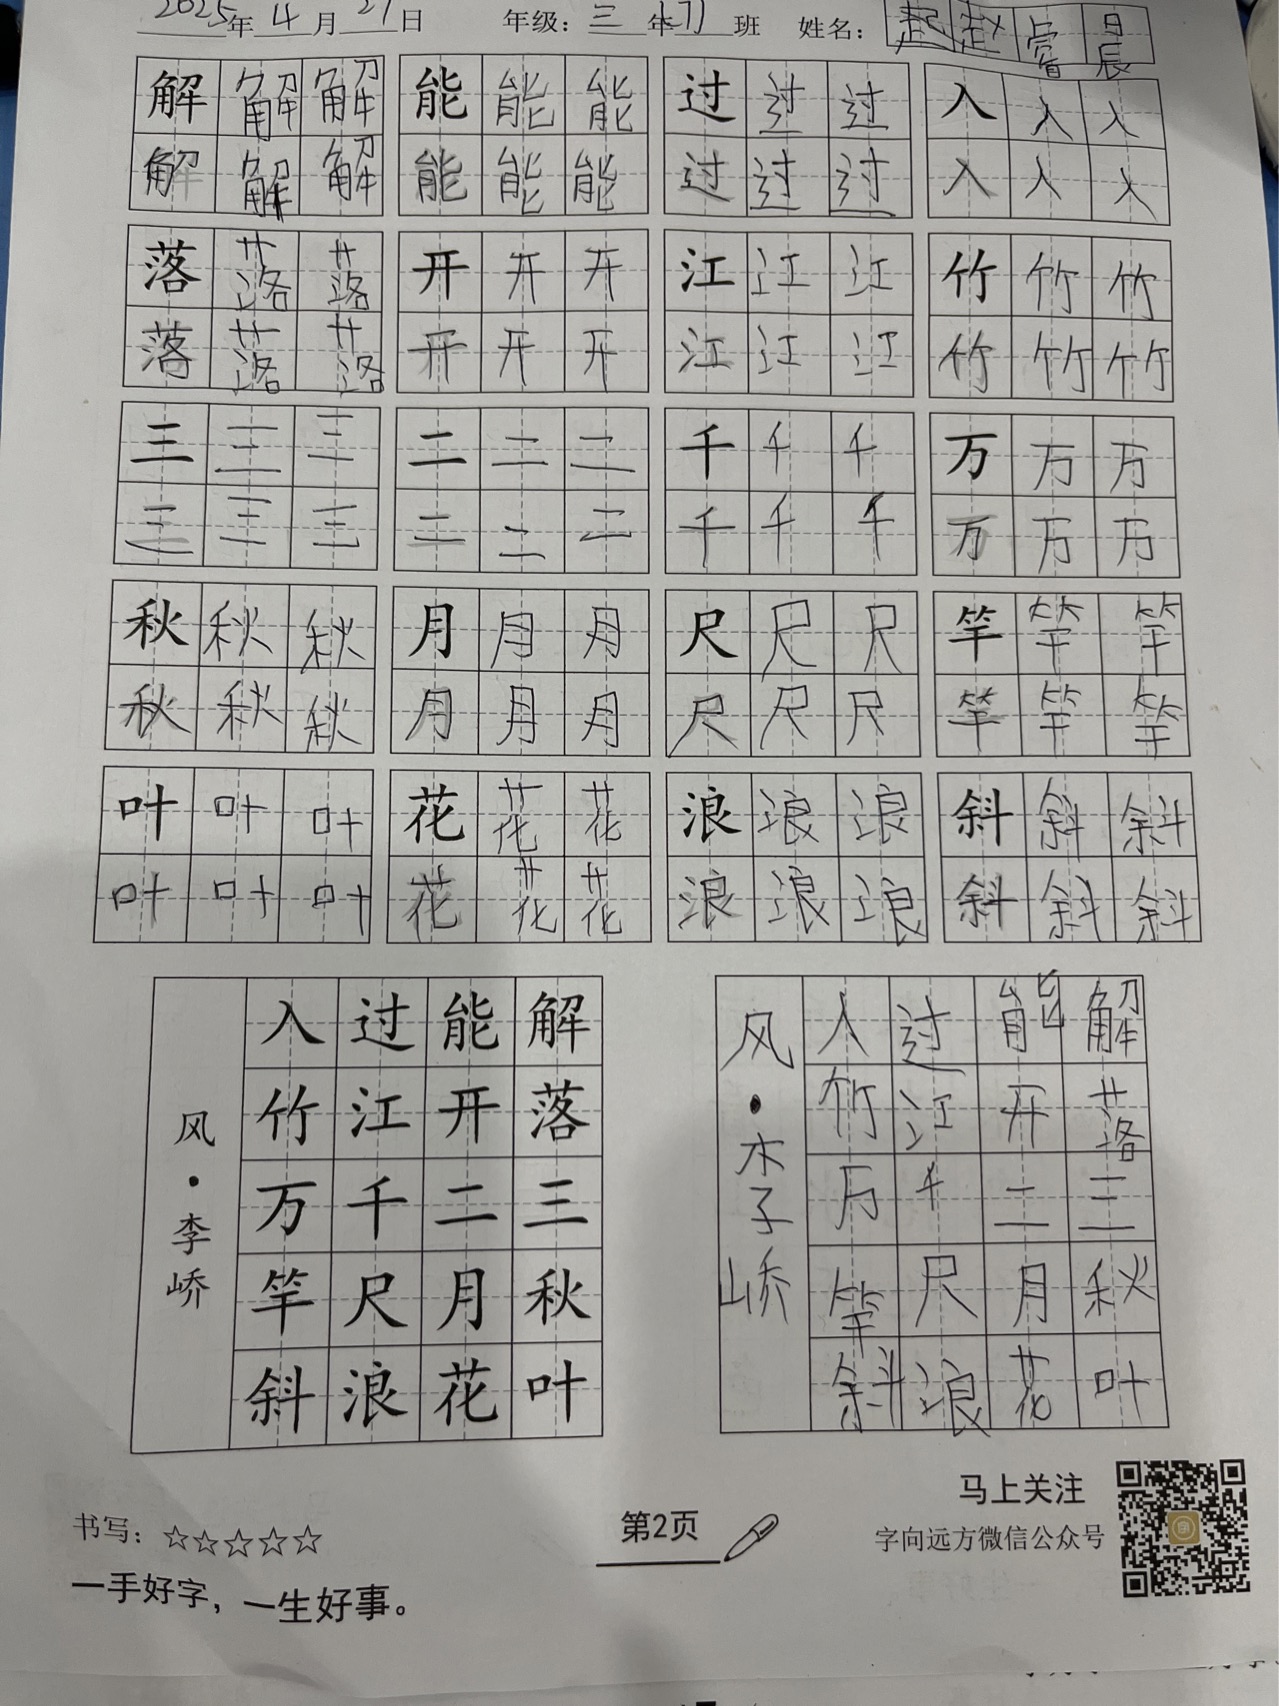 2025年 4月 27日 年级：三年 班 姓名：赵 睿 晨
解 解 解 能 能 能 过 过 过 入 入 入
解 解 解 能 能 能 过 过 过 入 入 入
落 落 落 开 开 开 江 江 江 竹 竹 竹
落 落 落 开 开 开 江 江 江 竹 竹 竹
三 三 三 二 二 二 千 千 千 万 万 万
三 三 三 二 二 二 千 千 千 万 万 万
秋 秋 秋 月 月 月 尺 尺 尺 竿 竿 竿
秋 秋 秋 月 月 月 尺 尺 尺 竿 竿 竿
叶 叶 叶 花 花 花 浪 浪 浪 斜 斜 斜
叶 叶 叶 花 花 花 浪 浪 浪 斜 斜 斜
解落三秋叶
能开二月花
过江千尺浪
入竹万竿斜
风·李峤
解落三秋叶
能开二月花
过江千尺浪
入竹万竿斜
风·李峤
书写：☆☆☆☆☆
一手好字，一生好事。
第2页
马上关注
字向远方微信公众号